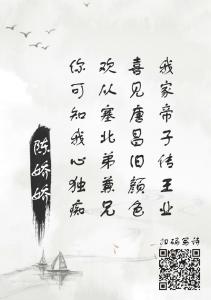 我家帝子传王业
喜见唐昌旧颜色
欢从塞北弟兼兄
你可知我心独痴
陈娇娇
扫码写诗